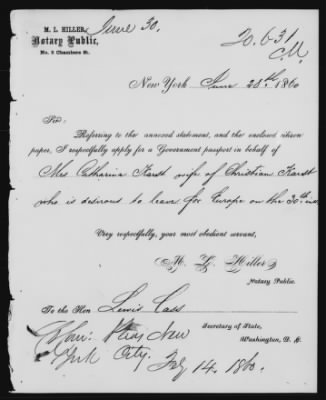 M. L. HILLER, June 30.
Notary Public,
No. 3 Chambers St.
20.631
CM
New York June 28th 1860
Sir:
Referring to the annexed statement, and the enclosed citizen
paper, I respectfully apply for a Government passport in behalf of
Mrs Catharina Karst wife of Christian Karst
who is desirous to leave for Europe on the 30th inst
Very respectfully, your most obedient servant,
M. L. Hiller
Notary Public.
To the Hon Lewis Cass
Secretary of State,
Washington, D. C.
New
York City. July 14. 1860.